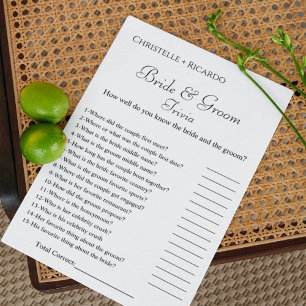 CHRISTELLE + RICARDO
Bride & Groom
Trivia
How well do you know the bride and the groom?
1-Where did the couple first meet?
2-Where or what was the couple first date?
3-What is the bride middle name?
4-What is the groom middle name?
5-How long has the couple been together?
6-What is the bride favorite country?
7-What is the groom favorite sports?
8-Where did the couple get engaged?
9-What is her favorite restaurant?
10-How did the groom propose?
11-Where is the honeymoon?
12-Who is her celebrity crush?
13-Who is his celebrity crush
14-His favorite thing about the groom?
15-His favorite thing about the bride?
Total Correct: